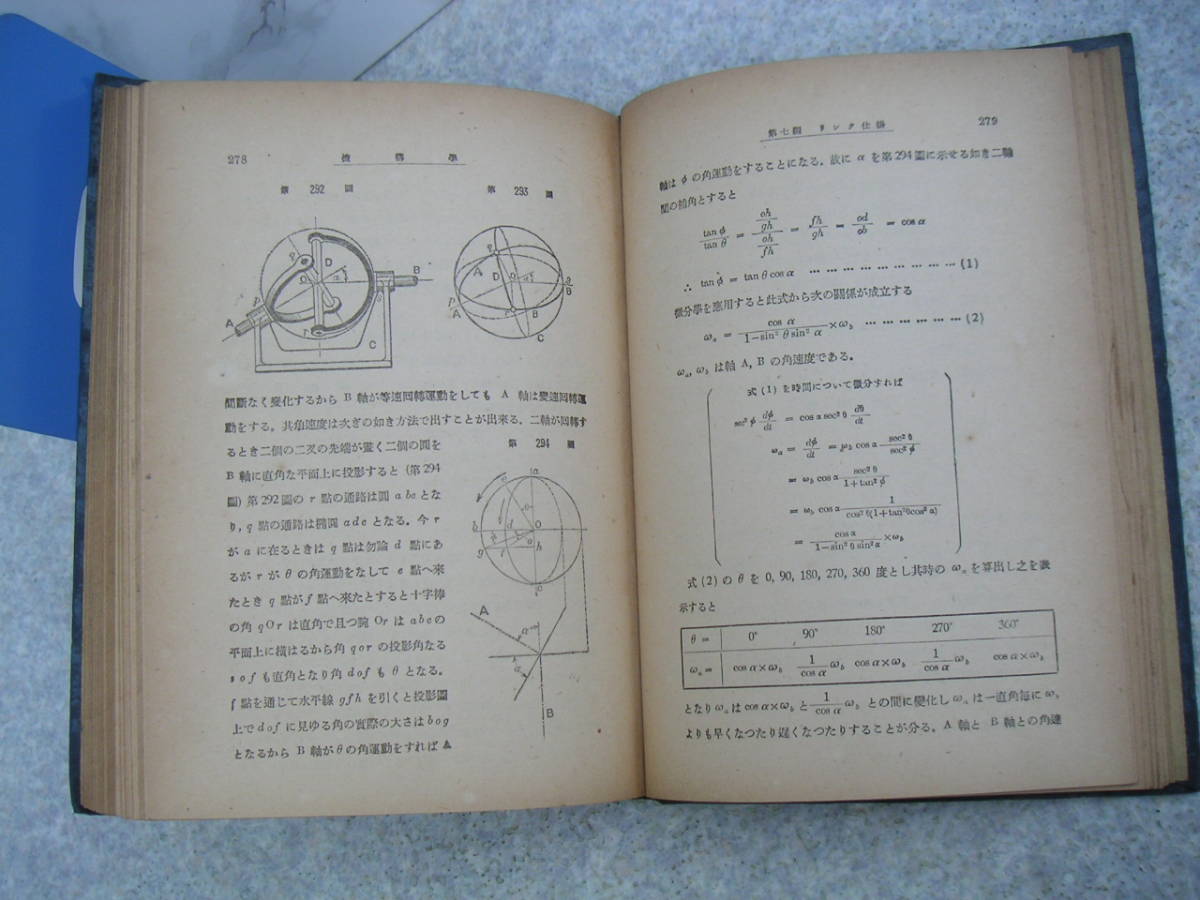 278 機構學
第 292 圖
第 293 圖
間斷なく變化するから B 軸が等速回轉運動をしても A 軸は變速回轉運
動をする。其角速度は次ぎの如き方法で出すことが出來る。二軸が回轉す
るとき二個の二叉の先端が畫く二個の圓を
B 軸に直角な平面上に投影すると (第294
圖) 第292圖の r 點の通路は圓 abc とな
り, q 點の通路は橢圓 adc となる。今 r
が a に在るときは q 點は勿論 d 點にあ
るが r が θ の角運動をなして e 點へ來
たとき q 點が f 點へ來たとすると十字捧
の角 qOr は直角で且つ腕 Or は abc の
平面上に橫はるから角 qor の投影角なる
sof も直角となり角 dof も θ となる。
f 點を通じて水平線 gfh を引くと投影圖
上で dof に見ゆる角の實際の大さは bog
となるから B 軸が θ の角運動をすれば A
第 294 圖
第七編 リンク仕掛 279
軸は φ の角運動をすることになる。故に α を第294圖に示せる如き二軸
間の傾角とすると
tan φ / tan θ = (oh/gh) / (oh/fh) = fh/gh = od/ob = cos α
∴ tan φ = tan θ cos α ………………………(1)
微分學を應用すると此式から次の關係が成立する
ω_a = cos α / (1−sin² θ sin² α) ×ω_b ………………(2)
ω_a, ω_b は軸 A, B の角速度である。
式 (1) を時間について微分すれば
sec² φ dφ/dt = cos α sec² θ dθ/dt
ω_a = dφ/dt = ω_b cos α sec² θ / sec² φ
= ω_b cos α sec² θ / (1+tan² φ)
= ω_b cos α 1 / (cos² θ(1+tan²θcos² α))
= cos α / (1−sin² θ sin² α) ×ω_b
式 (2) の θ を 0, 90, 180, 270, 360 度とし其時の ω_a を算出し之を表
示すると
θ = 0° 90° 180° 270° 360°
ω_a = cos α×ω_b 1/cos α ω_b cos α×ω_b 1/cos α ω_b cos α×ω_b
となり ω_a は cos α×ω_b と 1/cos α ω_b との間に變化し ω_a は一直角每に ω_b
よりも早くなつたり遲くなつたりすることが分る。A 軸と B 軸との角速